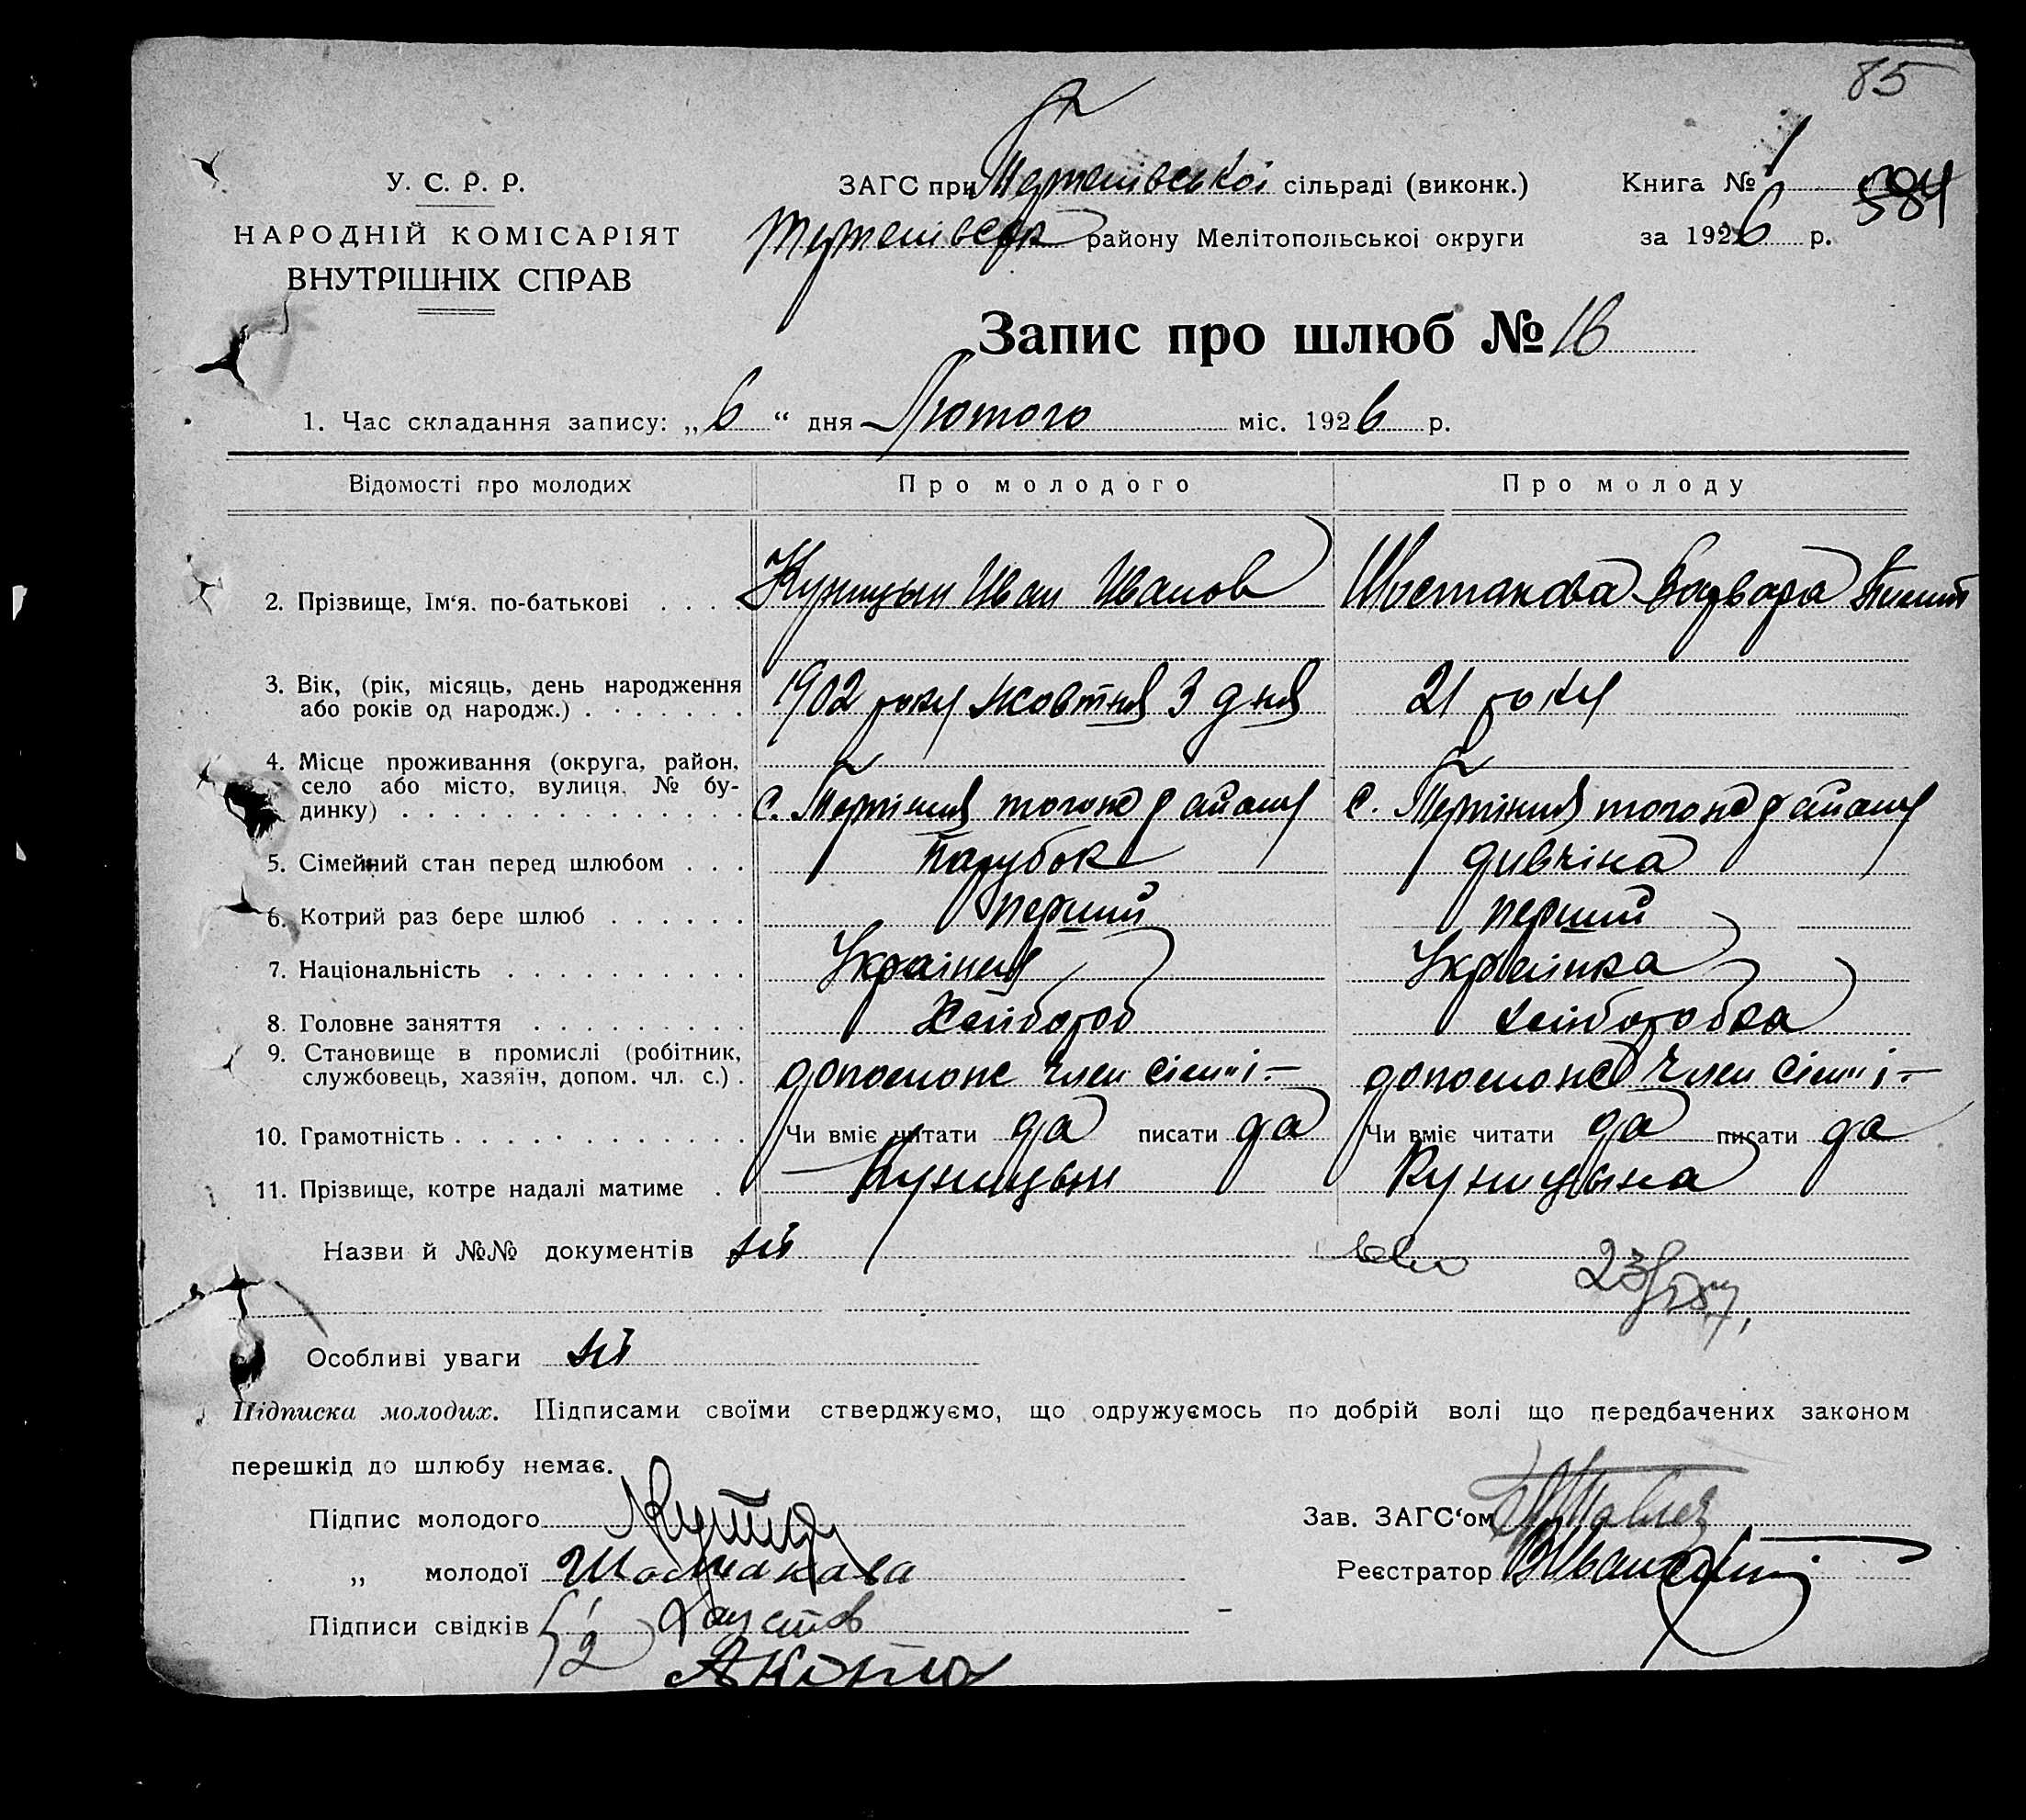 85
У. С. Р. Р.
НАРОДНІЙ КОМІСАРІЯТ
ВНУТРІШНІХ СПРАВ
ЗАГС при Терпенівської сільраді (виконк.)
району Мелітопольської округи
Книга № 1
584
за 1926 р.
Запис про шлюб № 16
1. Час складання запису: „6“ дня Лютого міс. 1926 р.
Відомості про молодих
Про молодого
Про молоду
2. Прізвище, Ім'я. по-батькові . . . . Куницын Иван Иванов
Шостакова Варвара
3. Вік, (рік, місяць, день народження
або років од народж.) . . . . . . . 1902 року жовтня 3 дня
21 року
4. Місце проживання (округа, район,
село або місто, вулиця, № бу-
динку) . . . . . . . . . . . . . . . с. Терпіния того же району
с. Терпіния того же району
5. Сімейний стан перед шлюбом . . . парубок
дивчіна
6. Котрий раз бере шлюб . . . . . . перший
перший
7. Національність . . . . . . . . . .
Українка
8. Головне заняття . . . . . . . . . Хлібороб
хліборобка
9. Становище в промислі (робітник,
службовець, хазяїн, допом. чл. с.) . допоможе член сімиі –
допоможе член сімиі –
10. Грамотність . . . . . . . . . . . . Чи вміє читати да писати да
Чи вміє читати да писати да
11. Прізвище, котре надалі матиме . . Куницын
Куницына
Назви й №№ документів ні
Особливі уваги ні
Підписка молодих. Підписами своїми стверджуємо, що одружуємось по добрій волі що передбачених законом
перешкід до шлюбу немає.
Підпис молодого
Зав. ЗАГС'ом
„ молодої Шостакава
Реєстратор
Підписи свідків 1
2